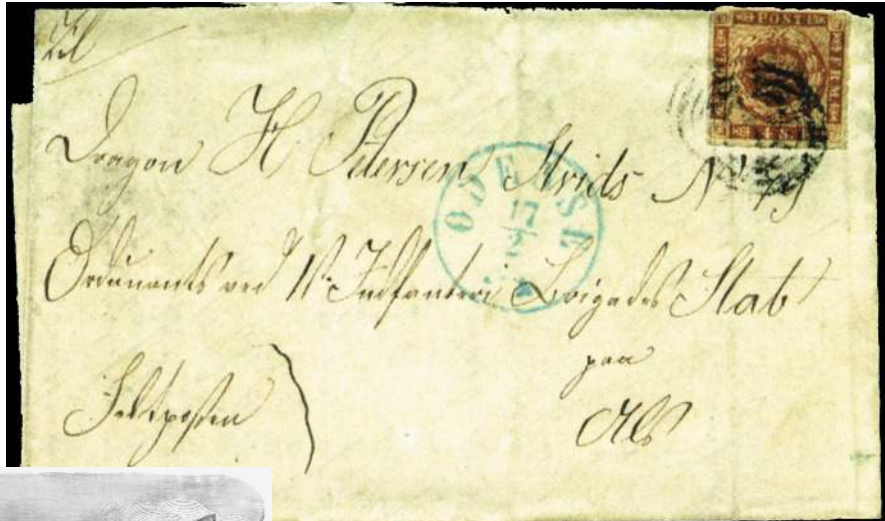 Til
POST
FRM
Dragon H Petersen Krids No 79
ODENSE
17
2
Ordonants ved 1ste Infanteri Brigades Stab
paa
Feltposten
Als